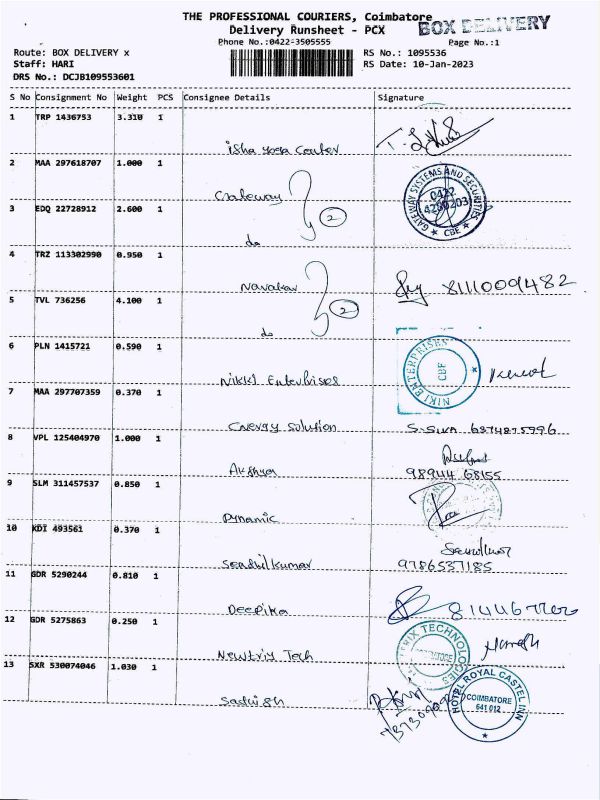 THE PROFESSIONAL COURIERS, Coimbatore
BOX DELIVERY
Delivery Runsheet - PCX
Phone No.:0422-3505555
Page No.:1
Route: BOX DELIVERY x
RS No.: 1095536
Staff: HARI
RS Date: 10-Jan-2023
DRS No.: DCJB109553601
S No Consignment No Weight PCS Consignee Details Signature
1 TRP 1436753 3.310 1
isha yoga Center
2 MAA 297618707 1.000 1
Gateway
GATEWAY SYSTEMS AND SECURITIES
0422
4200203
CBE
3 EDQ 22728912 2.600 1
2
do
4 TRZ 113302990 0.950 1
8111009482
5 TVL 736256 4.100 1
2
do
6 PLN 1415721 0.590 1
NIKI ENTERPRISES
CBE
Nikki Enterprises
7 MAA 297707359 0.370 1
Energy Solution
8 VPL 125404970 1.000 1
Akshya 98944 68155
9 SLM 311457537 0.850 1
Dynamic
10 KDI 493561 0.370 1
Senthilkumar 9786537185
11 GDR 5290244 0.810 1
Deepika
12 GDR 5275863 0.250 1
TECHNOLOGIES
Newtrix Tech
13 SXR 530074046 1.030 1
HOTEL ROYAL CASTEL INN
COIMBATORE
641 012
Sathish